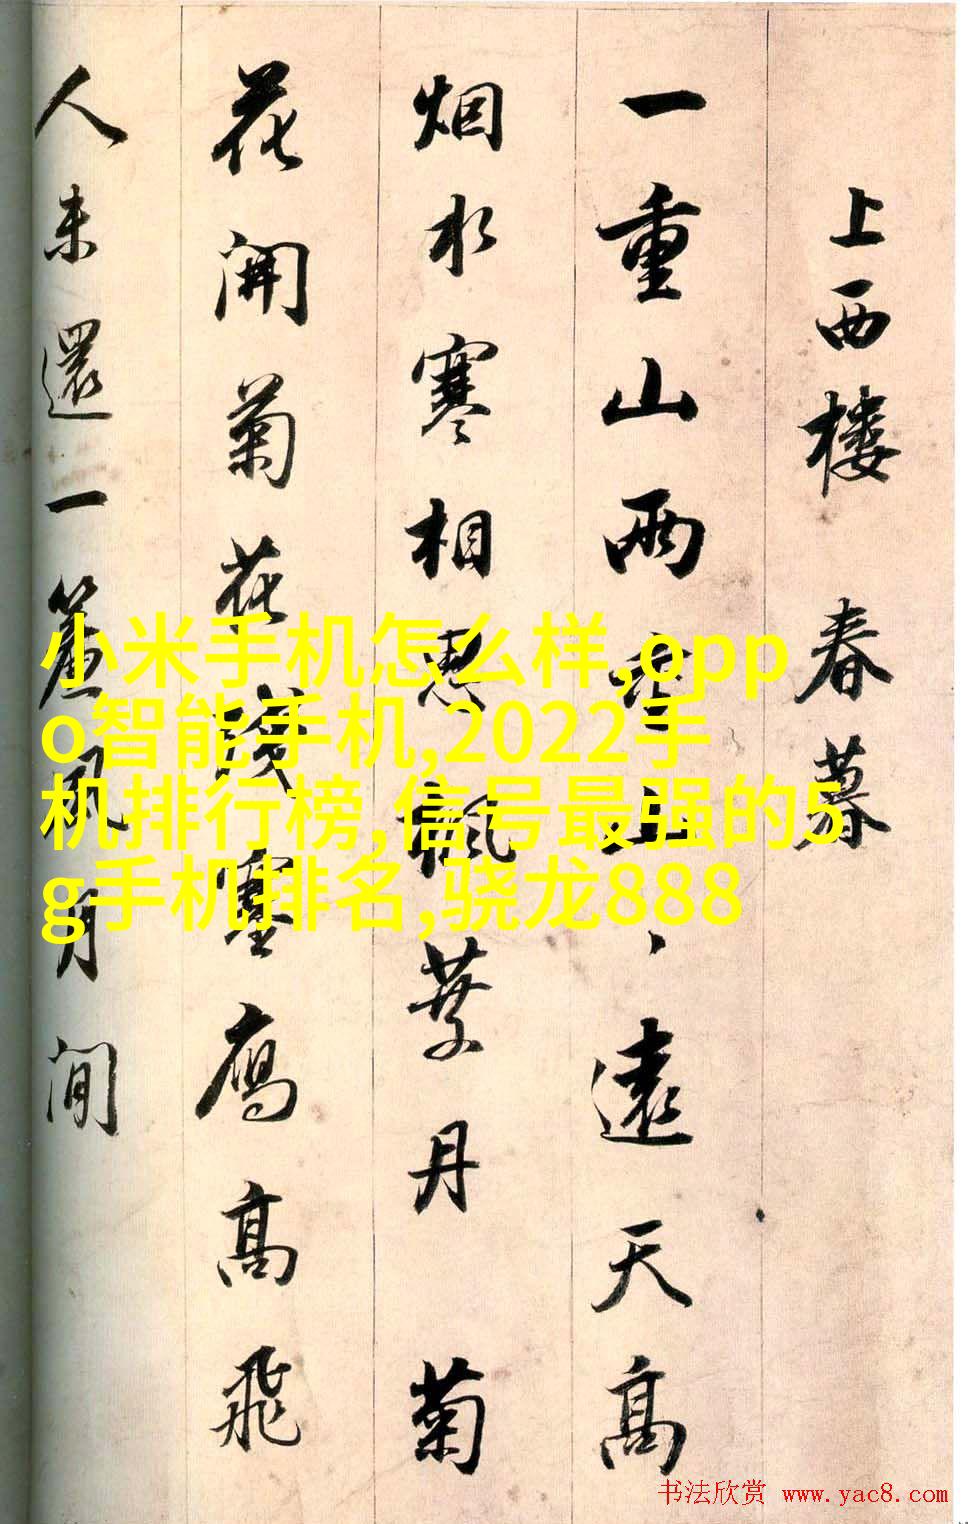 上西楼 春暮
一重山兩重山、遠天高
烟水寒相思楓葉丹 菊
花開菊花残塞雁高飛
人未還一簾風月閒
小米手机怎么样,opp
o智能手机,2022手
机排行榜,信号最强的5
g手机排名,骁龙888
书法欣赏 www.yac8.com